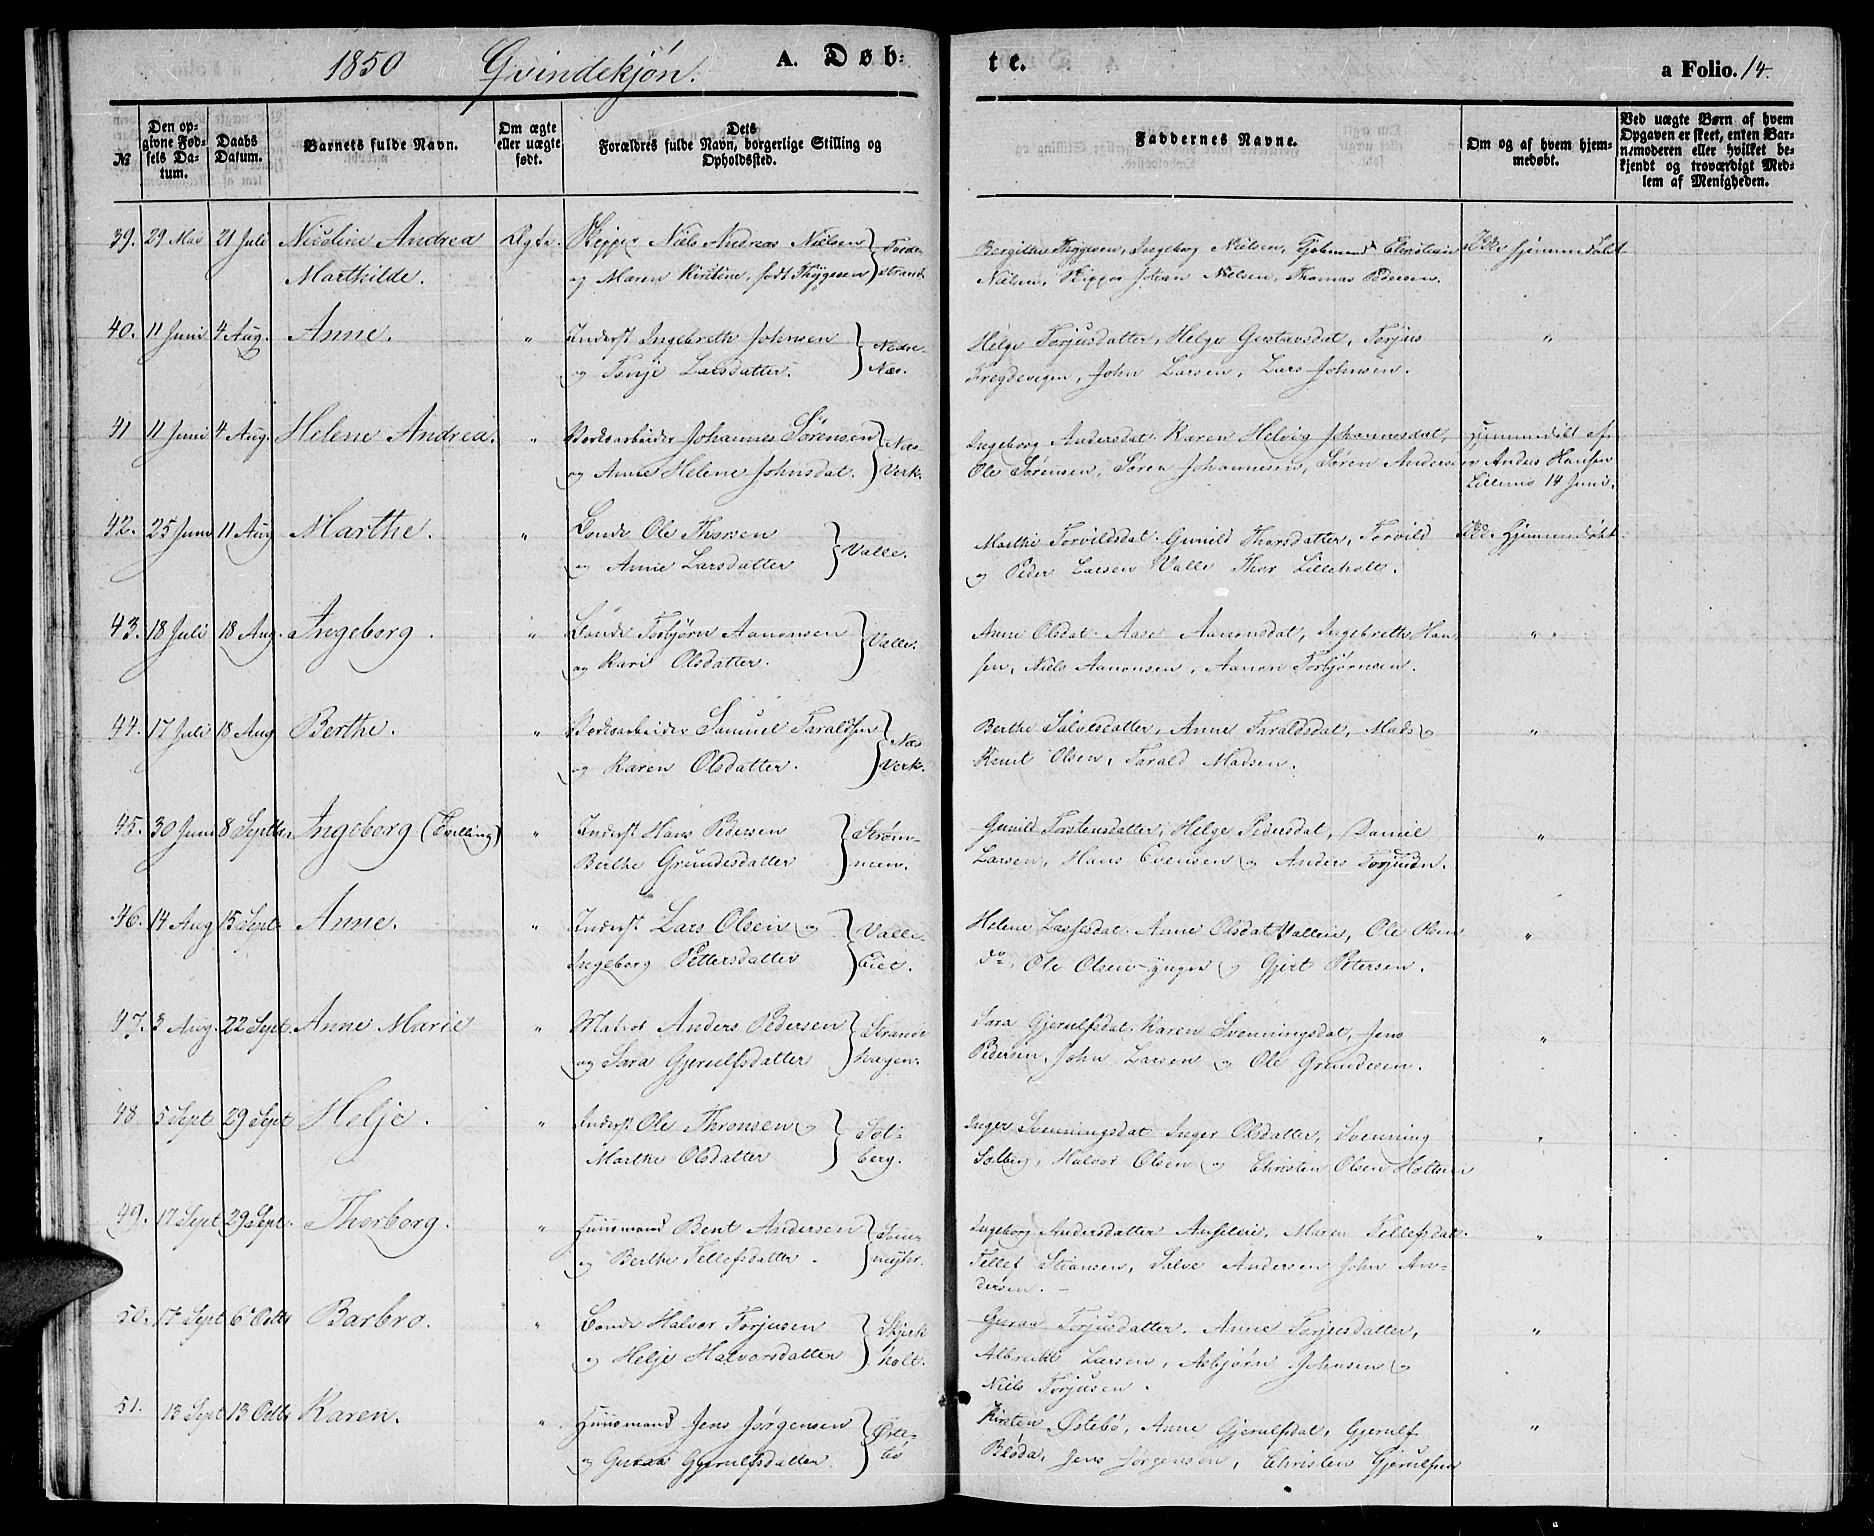 1850 Qvindekjön. A. Døb-
te. a Folio. 14.
№
Den op-
givne Fød-
sels Da-
tum.
Daabs
Datum.
Barnets fulde Navn.
Om ægte
eller uægte
født.
Dets
Forældres fulde Navn, borgerlige Stilling og
Opholdssted.
Faddernes Navne.
Om og af hvem hjem-
medøbt.
Ved uægte Børn af hvem
Opgaven er skeet, enten Bar-
nemoderen eller hvilket be-
kjendt og troværdigt Med-
lem af Menigheden.
39. 29 Mai 21 Juli Nicoline Andrea Ægte. Skipper Niels Andreas Nielsen
Marthilde. og Maren Kirstine, født Thygesen
Thygesen, Ingeborg Nielsen, Christian
Nielsen, Skipper Johan Nielsen, Thomas Pedersen.
Ikke Hjemmedøbt
40. 11 Juni 4 Aug. Anne. " Inderst Ingebreth Johnsen Nedre
og Larsdatter. Næs.
Helge Torjusdatter, Helge Gustavsdat, Torjus
John Larsen, Lars Johnsen. "
41 11 Juni 4 Aug. Helene Andrea. " Johannes Sörensen Næs
og Anne Helene Johnsdat. Verk.
Ingeborg Andersdat. Karen Helvig Johannesdat,
Ole Sørensen, Søren Johannesens, Søren Andersen
Hjemmedöbt af
Anders Hansen
14 Juni.
42. 25 Juni 11 Aug Marthe. " Bonde Ole Thorsen Valle.
og Anne Larsdatter
Marthe Torvildsdat. Gunild Thorsdatter, Torvild
og Peder Larsen Valle Thor Lilleholt.
Ikke Hjemmedøbt
43. 18 Juli 18 Aug. Ingeborg. " Bonde Torbjørn Aanonsen Valle.
og Kari Olsdatter.
Anne Olsdat. Aase Aanonsdat, Ingebreth Han-
sen, Niels Aanonsen, Aanon Torbjørnsen. "
44. 17 Juli 18 Aug Berthe. " Samuel Taraldsen Næs
og Karen Olsdatter. Verk.
Berthe Salvesdatter, Anne Taraldsdat, Mads og
Knut Olsen, Tarald Madsen. "
45. 30 Juni 8 Septbr Ingeborg (Tvilling) " Inderst Hans Pedersen Strøm-
Berthe Grundesdatter men.
Gunild Torstensdatter, Helge Pedersdat, Daniel
Larsen, Hans Evensen og Anders Torjusen. "
46. 14 Aug 15 Sept. Anne. " Inderst Lars Olsen og Valle
Ingeborg Pettersdatter Eiet.
Helene Larsesdat. Anne Olsdat Valleie, Ole Olsen
do, Ole Olsen yngre og Gjert Petersen. "
47. 3 Aug. 22 Sept. Anne Marie " Matros Anders Pedersen
og Sara Gjerulfsdatter
Sara Gjerulfsdat. Karen Svenningsdat, Jens
Pedersen, John Larsen og Ole Grundesen. "
48 5 Sept 29 Sept Helje. " Inderst Ole Thronsen og Sol-
Marthe Olsdatter berg.
Inger Svenningsdat Inger Olsdatter, Svenning
Solberg, Halvor Olsen og Christen Olsen "
49. 17 Sept 29 Sept. Thorborg. " Huusmand Bent Andersen
og Berthe Tellefsdatter. myhr.
Ingeborg Andersdatter Maren Tellefsdatt.
Tellef Salve Andersen John An-
dersen. "
50. 17 Sept 6 Octbr Barbro. " Bonde Halvor Torjusen Skjerk-
og Helje Halvorsdatter holt.
Guroe Torjusdatter. Anne Torjusdatter,
Albrecht Larsen, Asbjørn Johnsen og
Niels Torjusen. "
51. 13 Sept 13 Octbr Karen. " Huusmand Jens Jørgensen Øste-
og Guroe Gjerulfsdatter. bö
Kirsten Østebö, Anne Gjerulfsdat, Gjerulf
Jens Jørgensen, Christen Gjerulfsen "